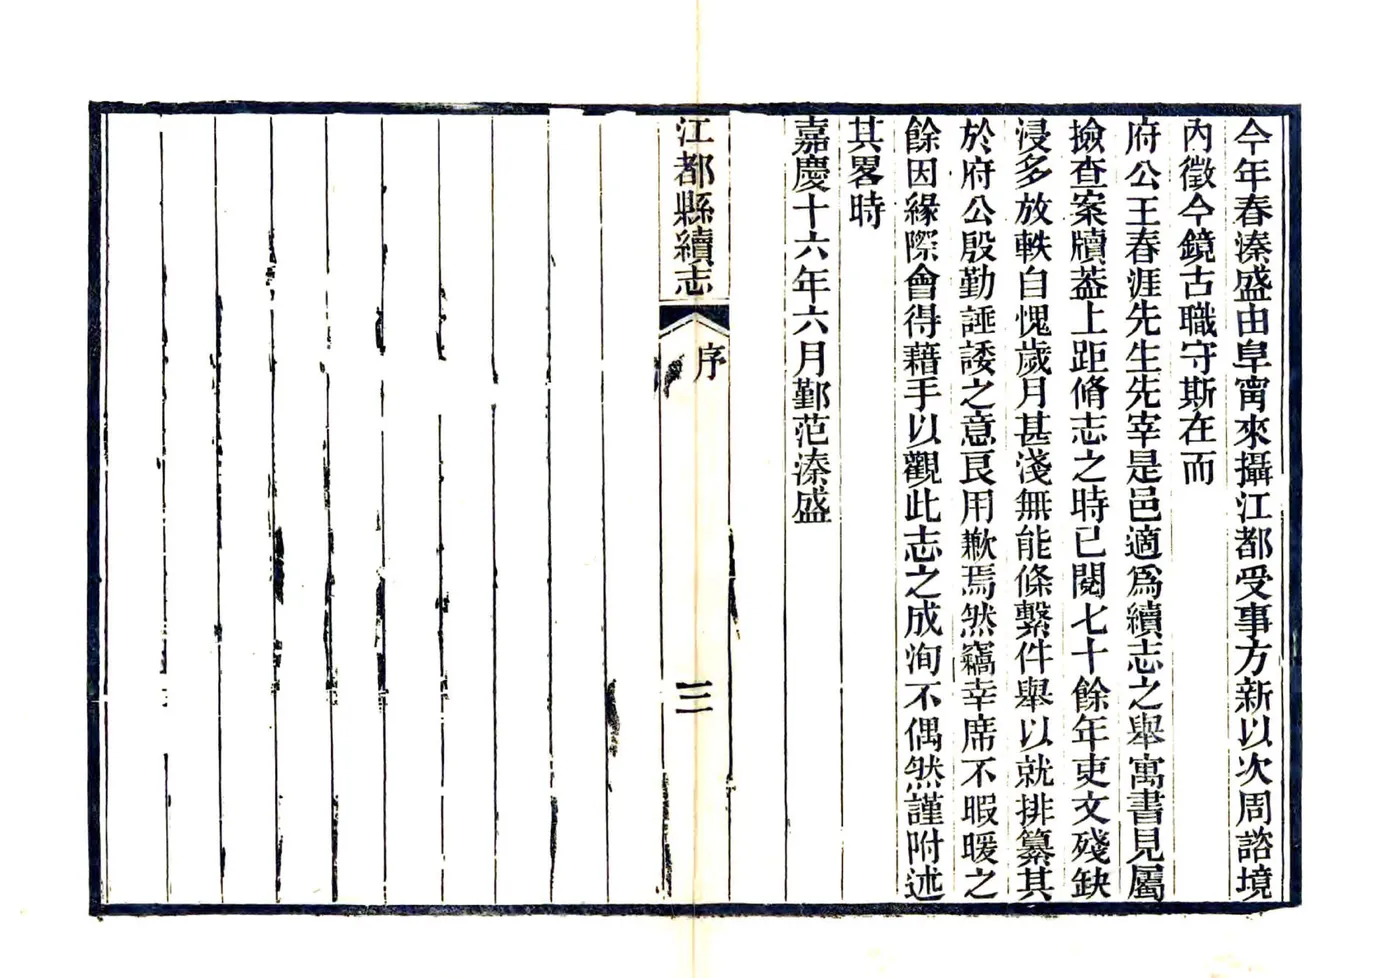 今年春溱盛由阜甯來攝江都受事方新以次周諮境
內徵今鏡古職守斯在而
府公王春涯先生先宰是邑適爲續志之舉寓書見屬
撿查案牘葢上距脩志之時已閱七十餘年吏文殘缺
浸多放軼自愧歲月甚淺無能條繫件舉以就排纂其
於府公殷勤諈諉之意良用歉焉然竊幸席不暇暖之
餘因緣際會得藉手以觀此志之成洵不偶然謹附述
其畧時
嘉慶十六年六月鄞范溱盛
江都縣續志
序
三